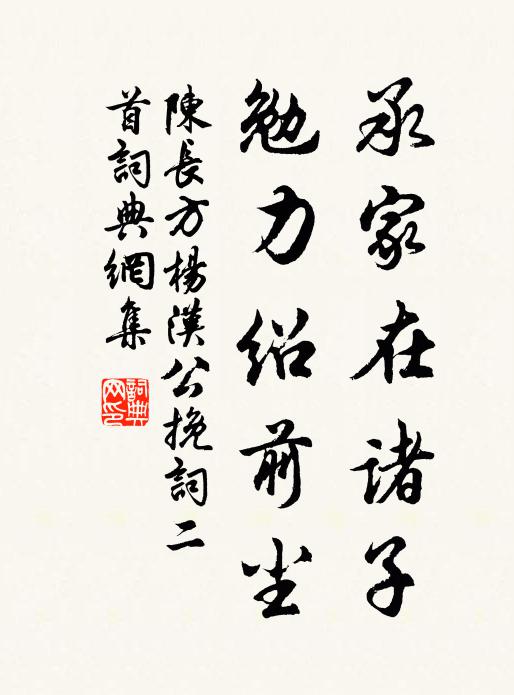 承家在諸子
勉力紹前尘
陳長方楊漢公挽詞二
首詞典網集
詞典
网印